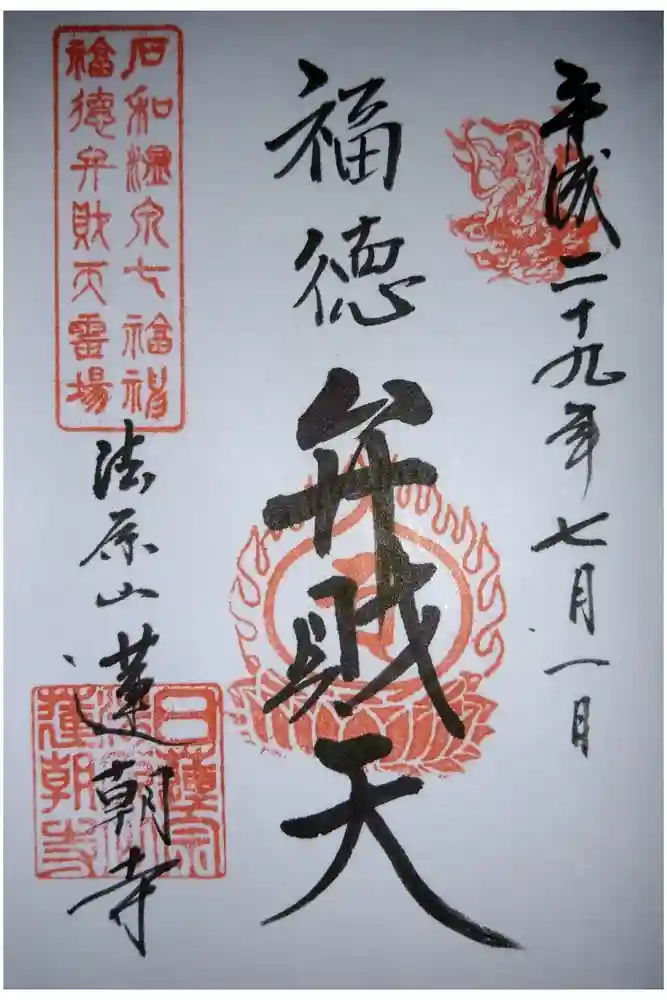 平成二十九年七月一日
福徳
弁財天
石和温泉七福神
福徳弁財天霊場
法原山蓮朝寺
日蓮宗
蓮朝寺